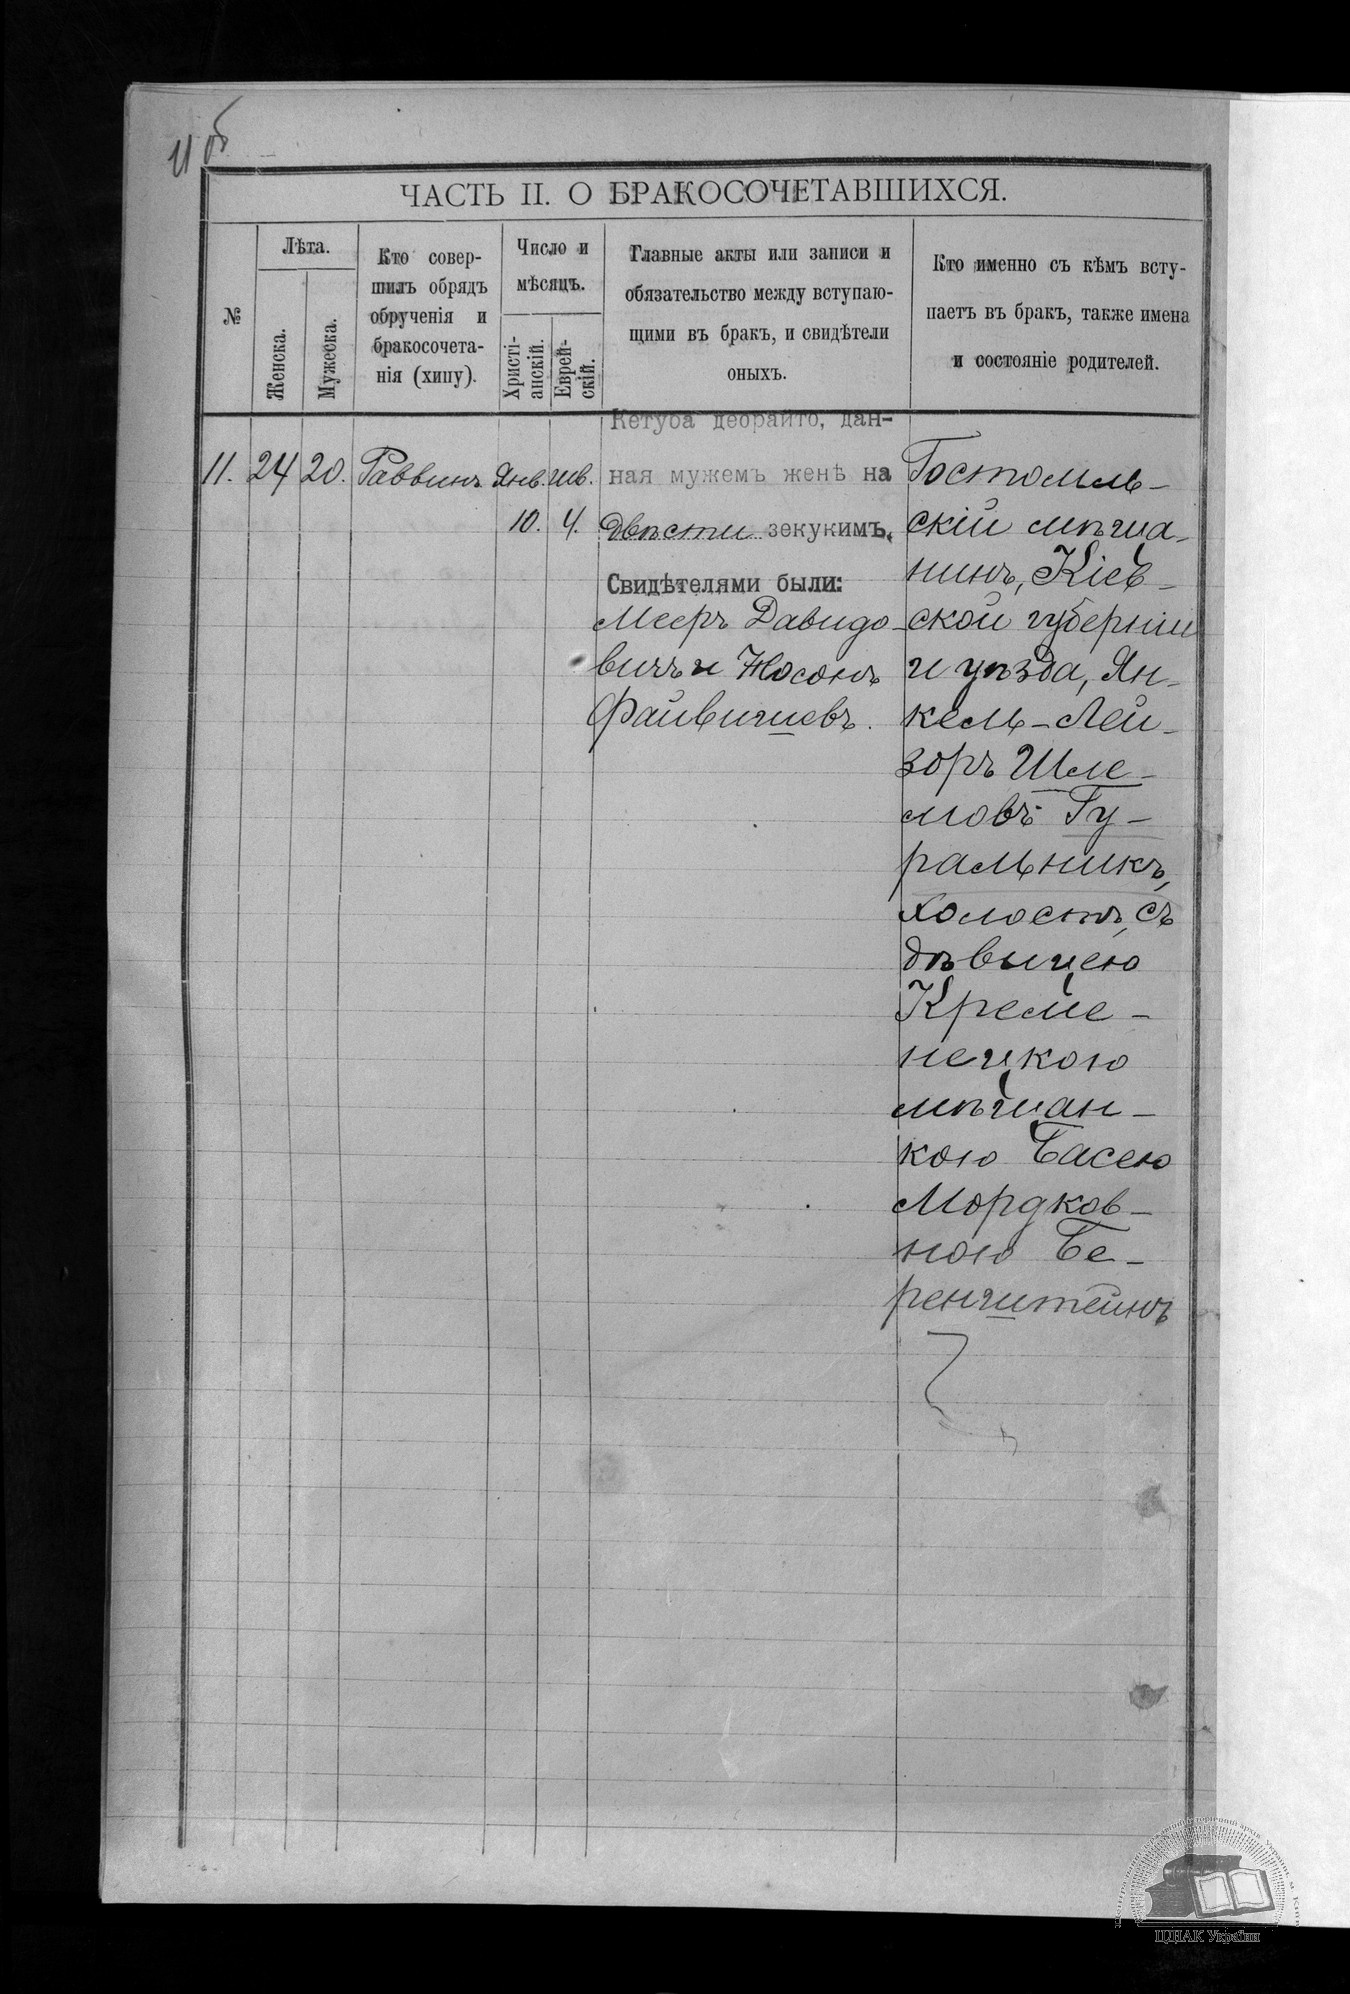 11 об
ЧАСТЬ II. О БРАКОСОЧЕТАВШИХСЯ.
№
Лѣта.
Женска.
Мужеска.
Кто совер-
шилъ обрядъ
обрученія и
бракосочета-
нія (хипу).
Число и
мѣсяцъ.
Христі-
анскій.
Еврей-
скій.
Главные акты или записи и
обязательство между вступаю-
щими въ бракъ, и свидѣтели
оныхъ.
Кто именно съ кѣмъ всту-
паетъ въ бракъ, также имена
и состояніе родителей.
11. 24 20. Раввинъ Янв. Шв.
10. 4.
Кетуба деорайто, дан-
ная мужемъ женѣ на
двѣсти зекукимъ.
Свидѣтелями были:
Мееръ Давидо-
вичъ и Носонъ
Файвишевъ.
Гостомль-
скій мѣща-
нинъ, Кіев-
ской губерніи
и уѣзда, Ян-
кель-Лей-
зоръ Шле-
мовъ Гу-
ральникъ,
холостъ, съ
дѣвицею
Креме-
нецкою
мѣщан-
кою Басею
Мордков-
ною Бе-
ренштейнъ
ЦДІАК України